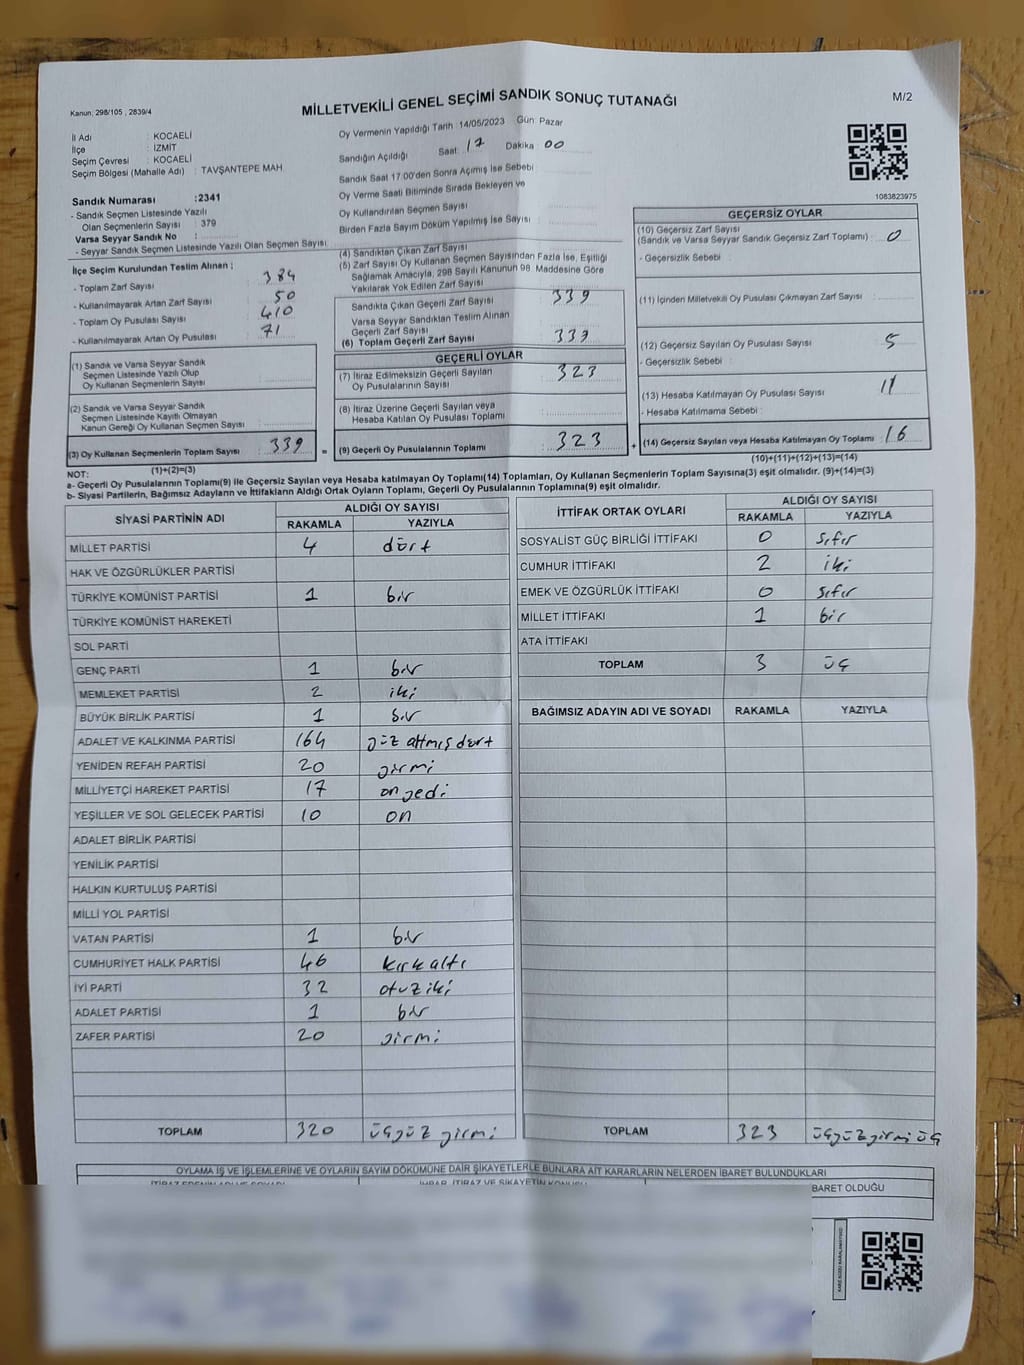 Kanun: 298/105 , 2839/4
MİLLETVEKİLİ GENEL SEÇİMİ SANDIK SONUÇ TUTANAĞI
M/2
İl Adı : KOCAELİ
İlçe : İZMİT
Seçim Çevresi : KOCAELİ
Seçim Bölgesi (Mahalle Adı) : TAVŞANTEPE MAH
Sandık Numarası :2341
- Sandık Seçmen Listesinde Yazılı
Olan Seçmenlerin Sayısı : 379
Varsa Seyyar Sandık No :
- Seyyar Sandık Seçmen Listesinde Yazılı Olan Seçmen Sayısı
Oy Vermenin Yapıldığı Tarih : 14/05/2023 Gün: Pazar
Sandığın Açıldığı Saat: 17 Dakika: 00
Sandık Saat 17.00'den Sonra Açımış İse Sebebi
Oy Verme Saati Bitiminde Sırada Bekleyen ve
Oy Kullandırılan Seçmen Sayısı
Birden Fazla Sayım Döküm Yapılmış İse Sayısı
1083823975
İlçe Seçim Kurulundan Teslim Alınan ;
- Toplam Zarf Sayısı 384
- Kullanılmayarak Artan Zarf Sayısı 50
- Toplam Oy Pusulası Sayısı 410
- Kullanılmayarak Artan Oy Pusulası 71
(1) Sandık ve Varsa Seyyar Sandık
Seçmen Listesinde Yazılı Olup
Oy Kullanan Seçmenlerin Sayısı
(2) Sandık ve Varsa Seyyar Sandık
Seçmen Listesinde Kayıtlı Olmayan
Kanun Gereği Oy Kullanan Seçmen Sayısı
(3) Oy Kullanan Seçmenlerin Toplam Sayısı : 339
(1)+(2)=(3)
(4) Sandıktan Çıkan Zarf Sayısı
(5) Zarf Sayısı Oy Kullanan Seçmen Sayısından Fazla İse, Eşitliği
Sağlamak Amacıyla, 298 Sayılı Kanunun 98. Maddesine Göre
Yakılarak Yok Edilen Zarf Sayısı
Sandıkta Çıkan Geçerli Zarf Sayısı 339
Varsa Seyyar Sandıktan Teslim Alınan
Geçerli Zarf Sayısı
(6) Toplam Geçerli Zarf Sayısı 339
GEÇERLİ OYLAR
(7) İtiraz Edilmeksizin Geçerli Sayılan
Oy Pusulalarının Sayısı 323
(8) İtiraz Üzerine Geçerli Sayılan veya
Hesaba Katılan Oy Pusulası Toplamı
= (9) Geçerli Oy Pusulalarının Toplamı 323 +
GEÇERSİZ OYLAR
(10) Geçersiz Zarf Sayısı
(Sandık ve Varsa Seyyar Sandık Geçersiz Zarf Toplamı) : 0
- Geçersizlik Sebebi :
(11) İçinden Milletvekili Oy Pusulası Çıkmayan Zarf Sayısı
(12) Geçersiz Sayılan Oy Pusulası Sayısı : 5
- Geçersizlik Sebebi :
(13) Hesaba Katılmayan Oy Pusulası Sayısı : 11
- Hesaba Katılmama Sebebi :
(14) Geçersiz Sayılan veya Hesaba Katılmayan Oy Toplamı : 16
(10)+(11)+(12)+(13)=(14)
NOT:
a- Geçerli Oy Pusulalarının Toplamı(9) ile Geçersiz Sayılan veya Hesaba Katılmayan Oy Toplamı(14) Toplamları, Oy Kullanan Seçmenlerin Toplam Sayısına(3) eşit olmalıdır. (9)+(14)=(3)
b- Siyasi Partilerin, Bağımsız Adayların ve İttifakların Aldığı Ortak Oyların Toplamı, Geçerli Oy Pusulalarının Toplamına(9) eşit olmalıdır.
SİYASİ PARTİNİN ADI ALDIĞI OY SAYISI
RAKAMLA YAZIYLA
MİLLET PARTİSİ 4 dört
HAK VE ÖZGÜRLÜKLER PARTİSİ
TÜRKİYE KOMÜNİST PARTİSİ 1 bir
TÜRKİYE KOMÜNİST HAREKETİ
SOL PARTİ
GENÇ PARTİ 1 bir
MEMLEKET PARTİSİ 2 iki
BÜYÜK BİRLİK PARTİSİ 1 bir
ADALET VE KALKINMA PARTİSİ 164 yüz altmış dört
YENİDEN REFAH PARTİSİ 20 yirmi
MİLLİYETÇİ HAREKET PARTİSİ 17 on yedi
YEŞİLLER VE SOL GELECEK PARTİSİ 10 on
ADALET BİRLİK PARTİSİ
YENİLİK PARTİSİ
HALKIN KURTULUŞ PARTİSİ
MİLLİ YOL PARTİSİ
VATAN PARTİSİ 1 bir
CUMHURİYET HALK PARTİSİ 46 kırk altı
İYİ PARTİ 32 otuz iki
ADALET PARTİSİ 1 bir
ZAFER PARTİSİ 20 yirmi
TOPLAM 320 üçyüz yirmi
İTTİFAK ORTAK OYLARI ALDIĞI OY SAYISI
RAKAMLA YAZIYLA
SOSYALİST GÜÇ BİRLİĞİ İTTİFAKI 0 sıfır
CUMHUR İTTİFAKI 2 iki
EMEK VE ÖZGÜRLÜK İTTİFAKI 0 sıfır
MİLLET İTTİFAKI 1 bir
ATA İTTİFAKI
TOPLAM 3 üç
BAĞIMSIZ ADAYIN ADI VE SOYADI RAKAMLA YAZIYLA
TOPLAM 323 üçyüz yirmi üç
OYLAMA İŞ VE İŞLEMLERİNE VE OYLARIN SAYIM DÖKÜMÜNE DAİR ŞİKAYETLERLE BUNLARA AİT KARARLARIN NELERDEN İBARET BULUNDUKLARI
BARET OLDUĞU